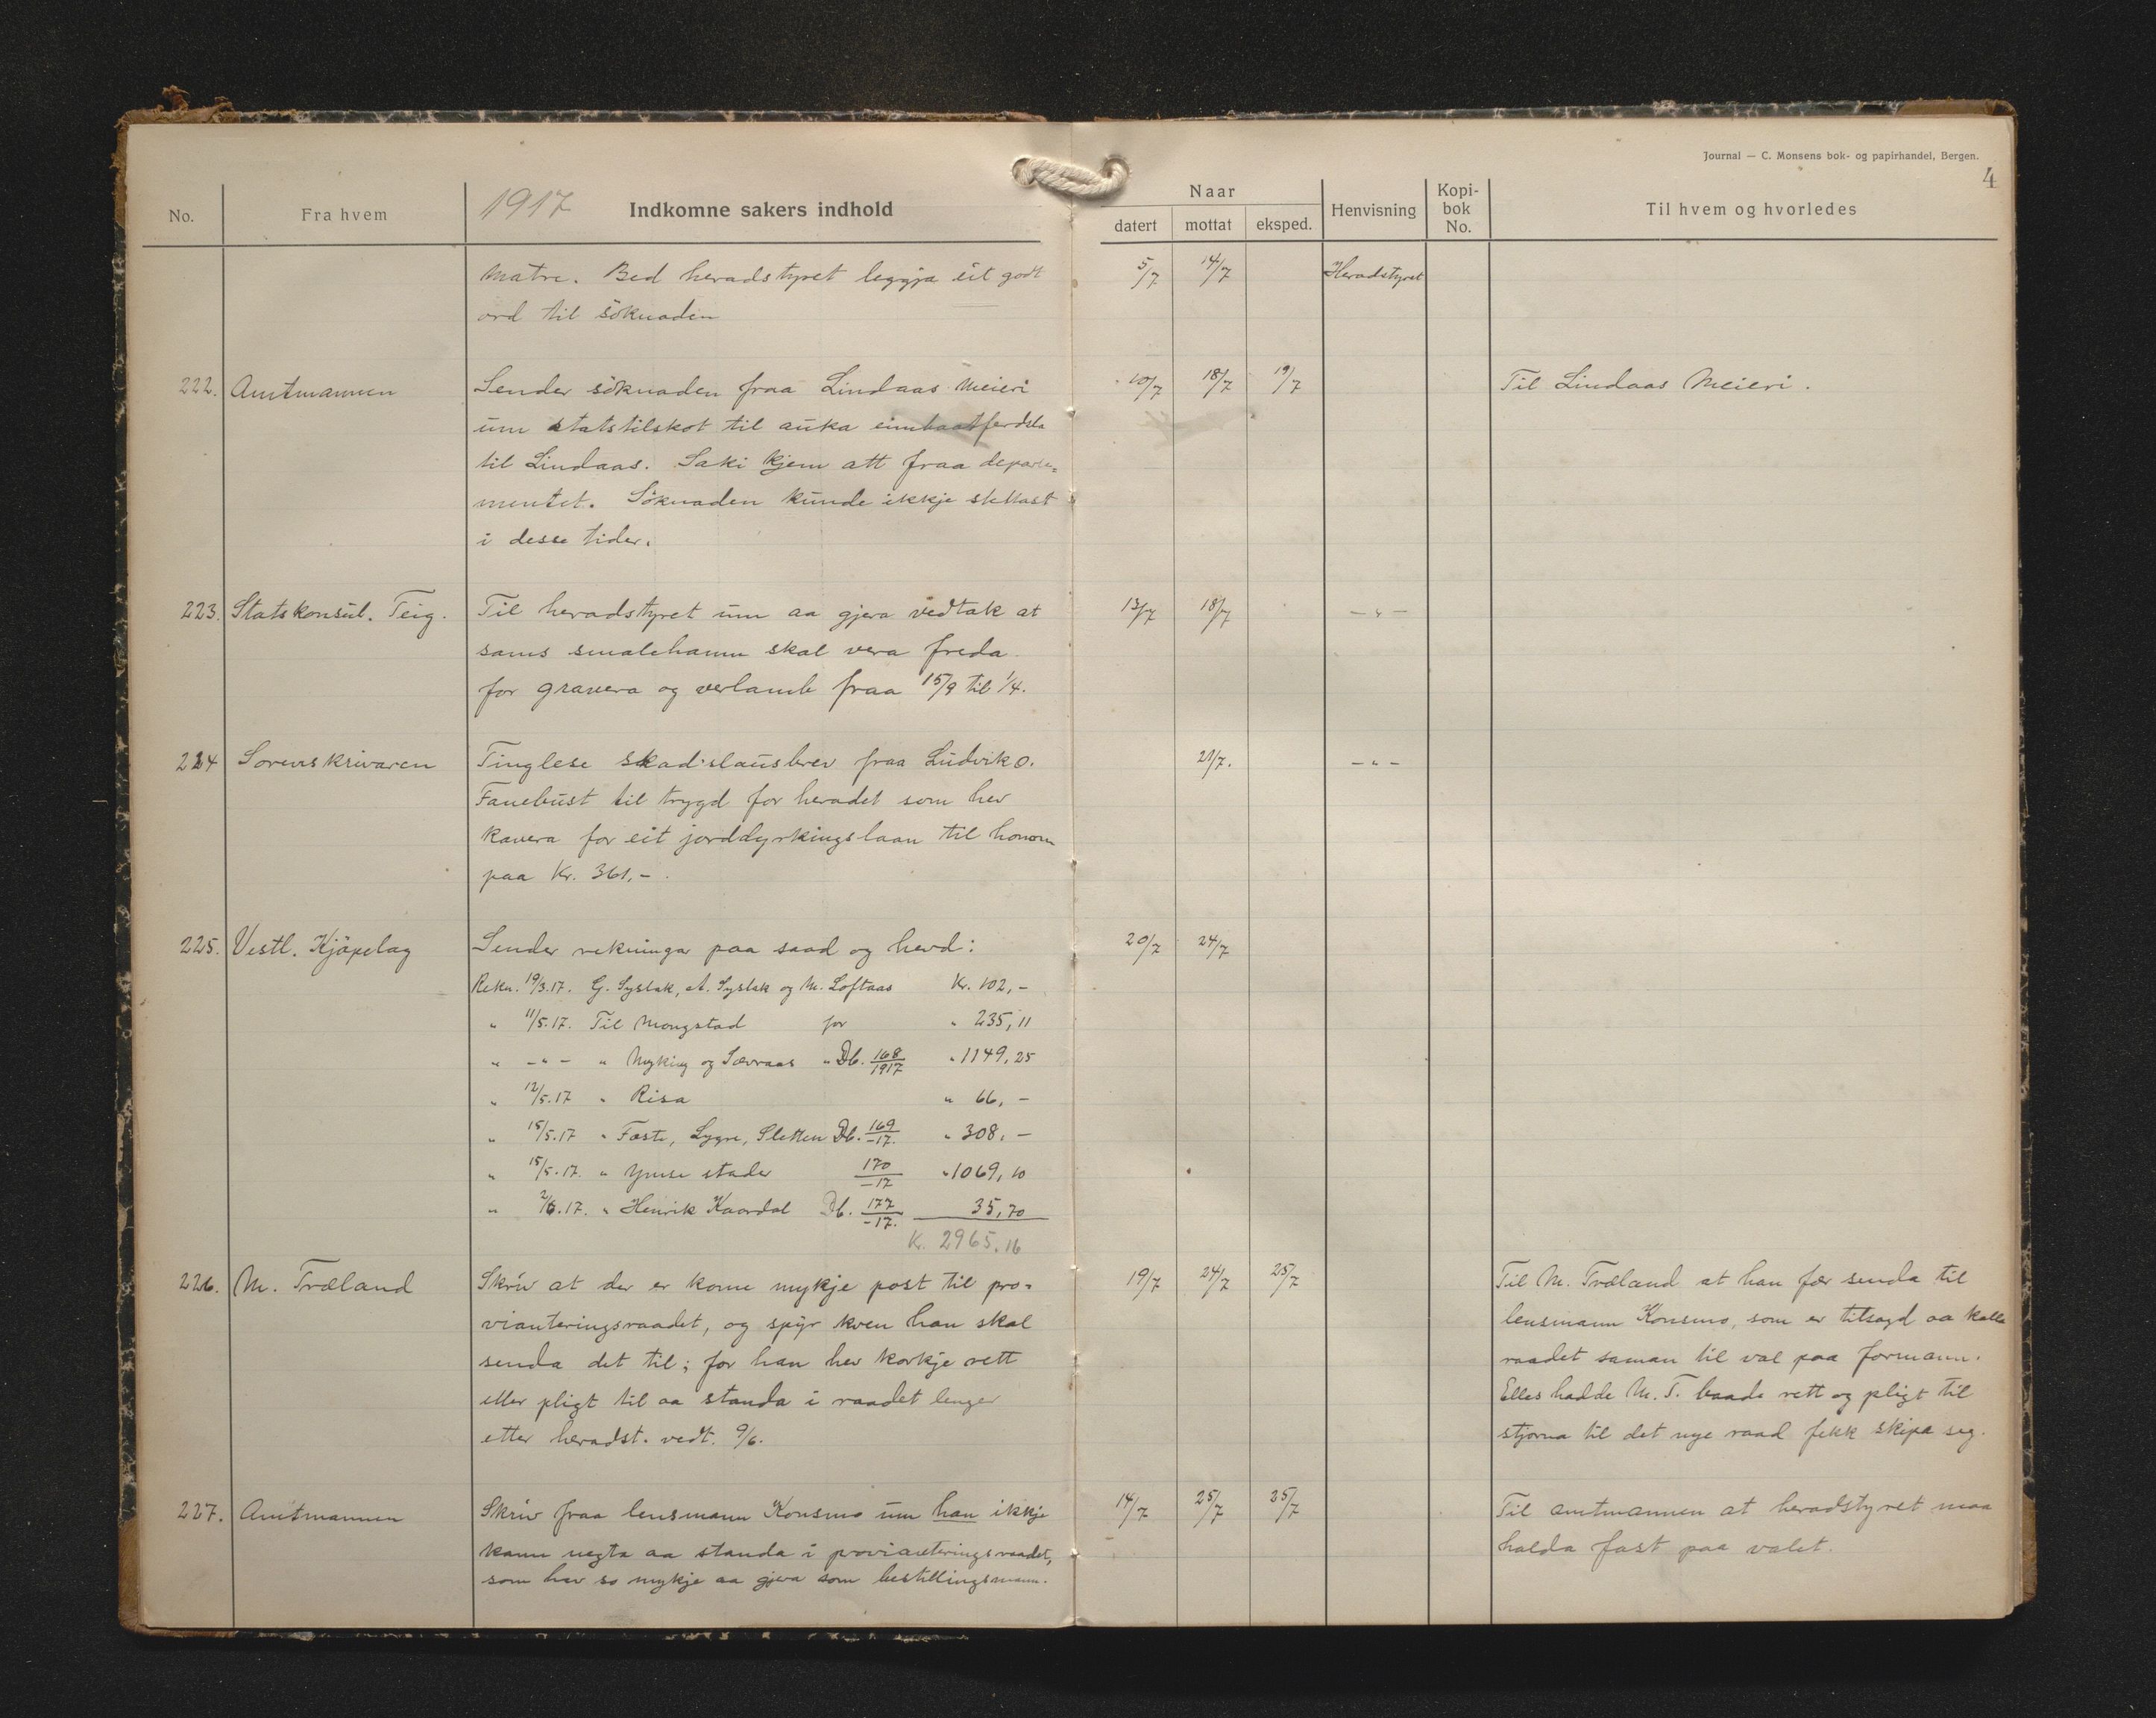 Journal — C. Monsens bok- og papirhandel, Bergen.
4
No. Fra hvem 1917 Indkomne sakers indhold Naar datert mottat eksped. Henvisning Kopi-bok No. Til hvem og hvorledes
Matre. Bed heradstyret leggja eit godt 5/7 14/7 Heradstyret
ord til söknaden
222. Amtmannen Sender söknaden fraa Lindaas Meieri 10/7 18/7 19/7 Til Lindaas Meieri.
um statstilskot til auka eimbaatferdsla
til Lindaas. Saki kjem att fraa departe=
mentet. Söknaden kunde ikkje stettast
i desse tider.
223. Statskonsul. Teig. Til heradstyret um aa gjera vedtak at 13/7 18/7 — " —
sams smalehamn skal vera freda
for gravera og verlamb fraa 15/9 til 1/4.
224 Sorenskrivaren Tinglese skadislausbrev fraa Ludvik O. 21/7. — " —
Fanebust til trygd for heradet som hev
kavera for eit jorddyrkingslaan til honom
paa Kr. 361,-.
225. Vestl. Kjöpelag Sender rekningar paa saad og hevd: 20/7 24/7
Rekn. 19/3.17. G. Syslak, A. Syslak og M. Loftaas Kr. 102,-
" 11/5.17. Til Mongstad for " 235,11
" - " - " Myking og Sævraas " Db. 168/1917 " 1149,25
" 12/5.17 " Risa " 66,-
" 15/5.17 " Foste, Lygre, Sletten Db. 169/-17. " 308.-
" 15/5.17. " Ymse stader 170/-17 " 1069,10
" 2/6.17. " Henrik Kaardal Db. 177/-17. 35,70
K. 2965.16
226. M. Træland Skriv at der er kome mykje post til pro= 19/7 24/7 25/7 Til M. Træland at han fær senda til
vianteringsraadet, og spyr kven han skal lensmann Konsmo, som er tilsagd aa kalla
senda det til; for han hev korkje rett raadet saman til val paa formann.
eller pligt til aa standa i raadet lenger Elles hadde M. T. baade rett og pligt til
etter heradst. vedt. 9/6. stjorna til det nye raad fekk skipa seg.
227. Amtmannen Skriv fraa lensmann Konsmo um han ikkje 14/7 25/7 25/7 Til amtmannen at heradstyret maa
kann negta aa standa i provianteringsraadet, halda fast paa valet.
som hev so mykje aa gjera som bestillingsmann.